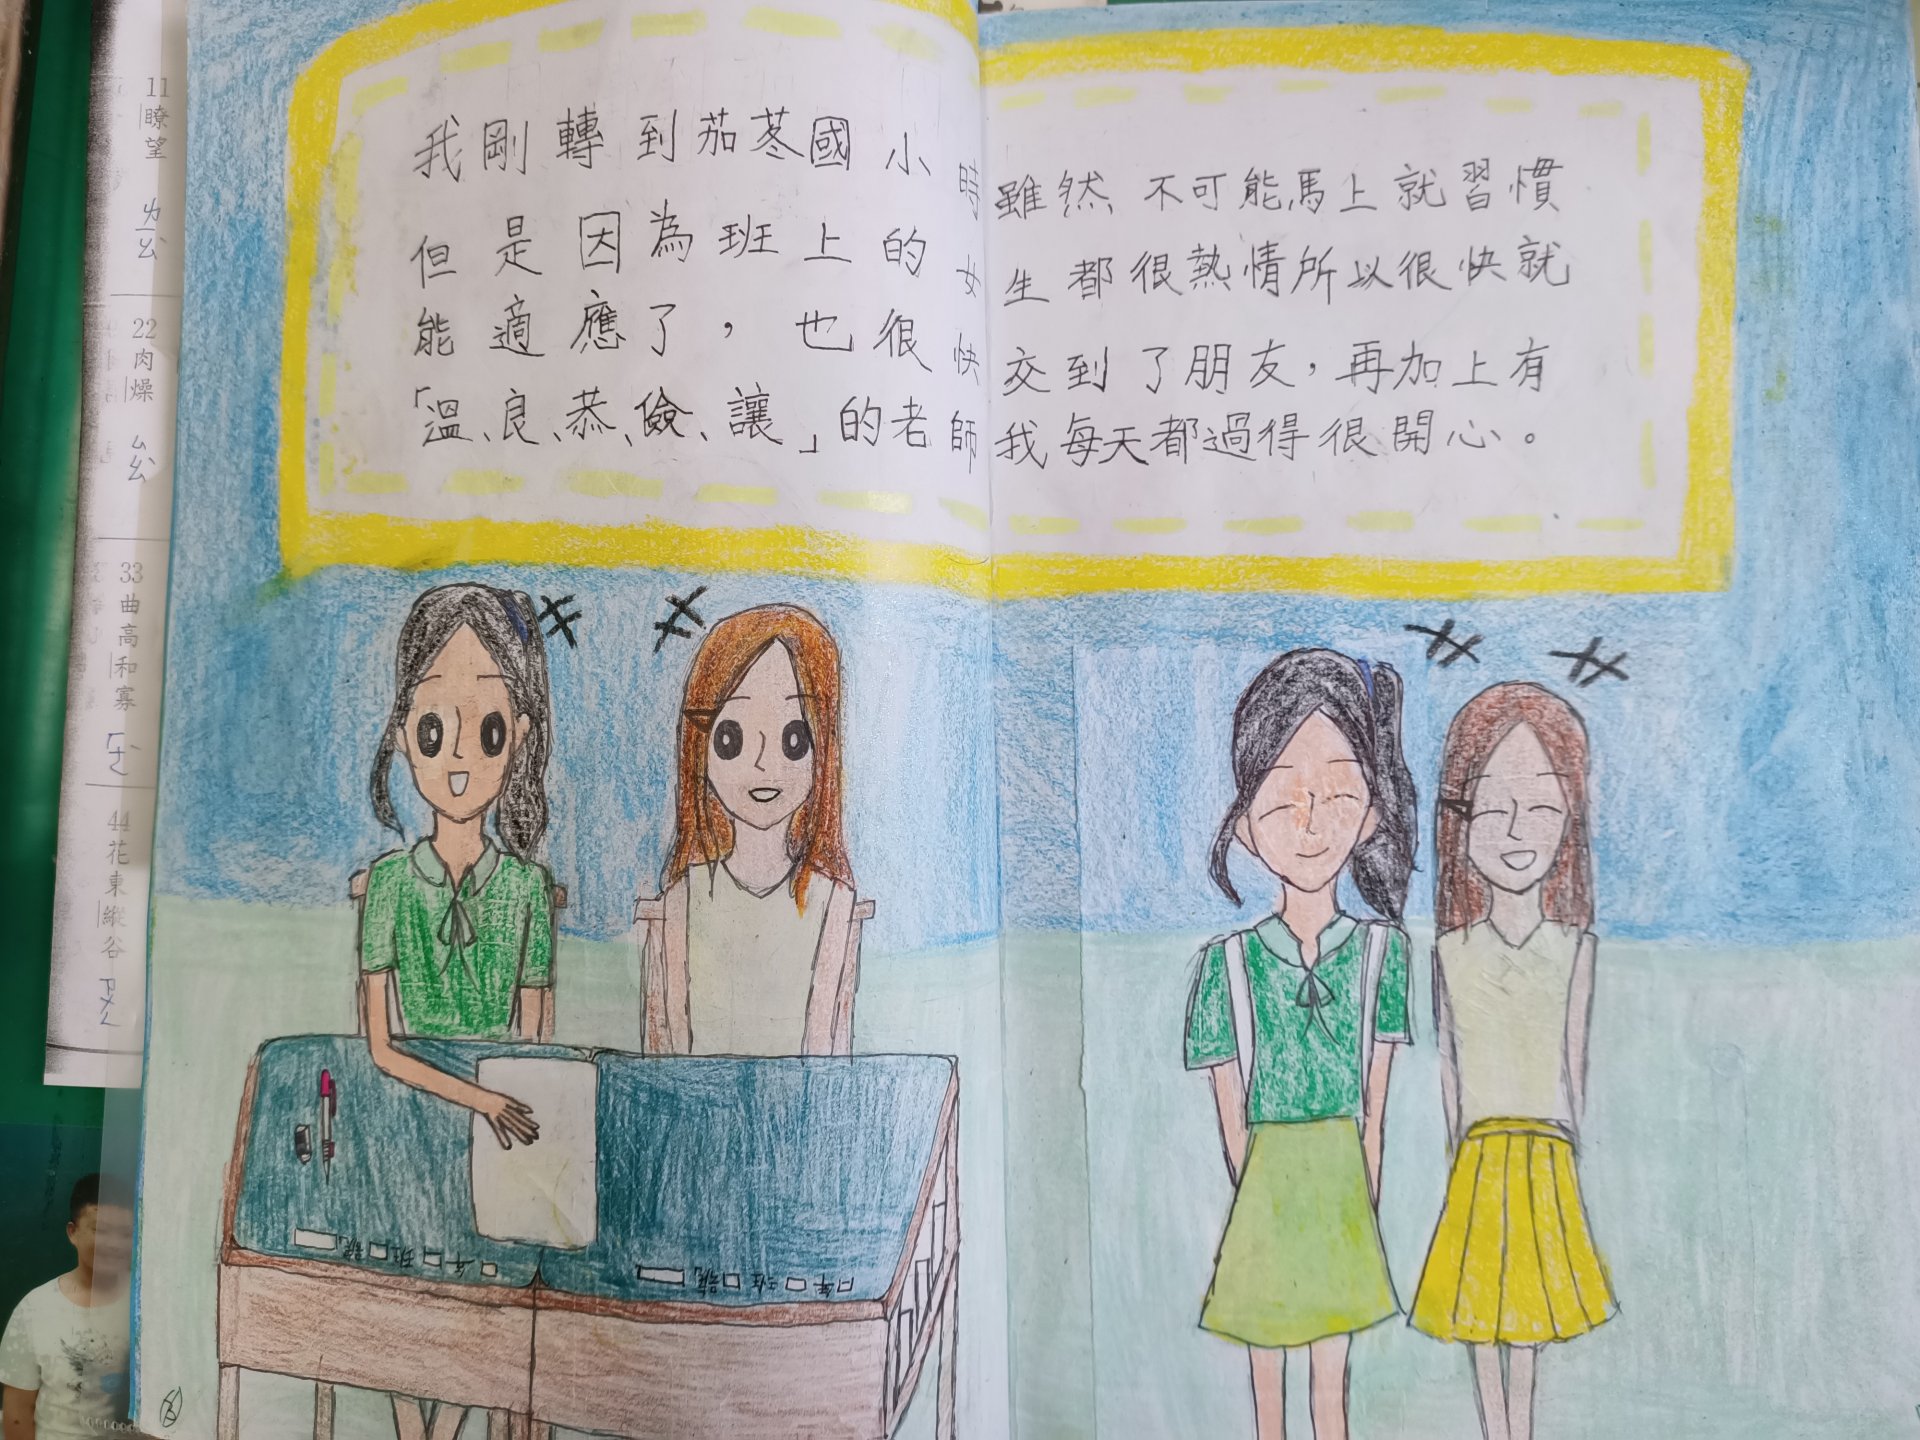 我剛轉到茄苳國小時雖然不可能馬上就習慣
但是因為班上的女生都很熱情所以很快就
能適應了，也很快交到了朋友，再加上有
「溫、良、恭、儉、讓」的老師我每天都過得很開心。
11
瞭望
ㄌㄧㄠ
22
肉燥
ㄙㄠ
33
曲高和寡
44
花東縱谷
年 班 號
年 班 號